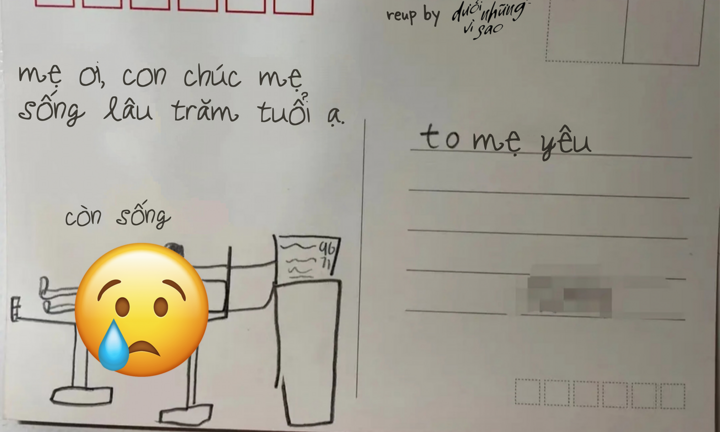 reup by dưới những vì sao
mẹ ơi, con chúc mẹ
sống lâu trăm tuổi ạ.
to mẹ yêu
còn sống
96
71